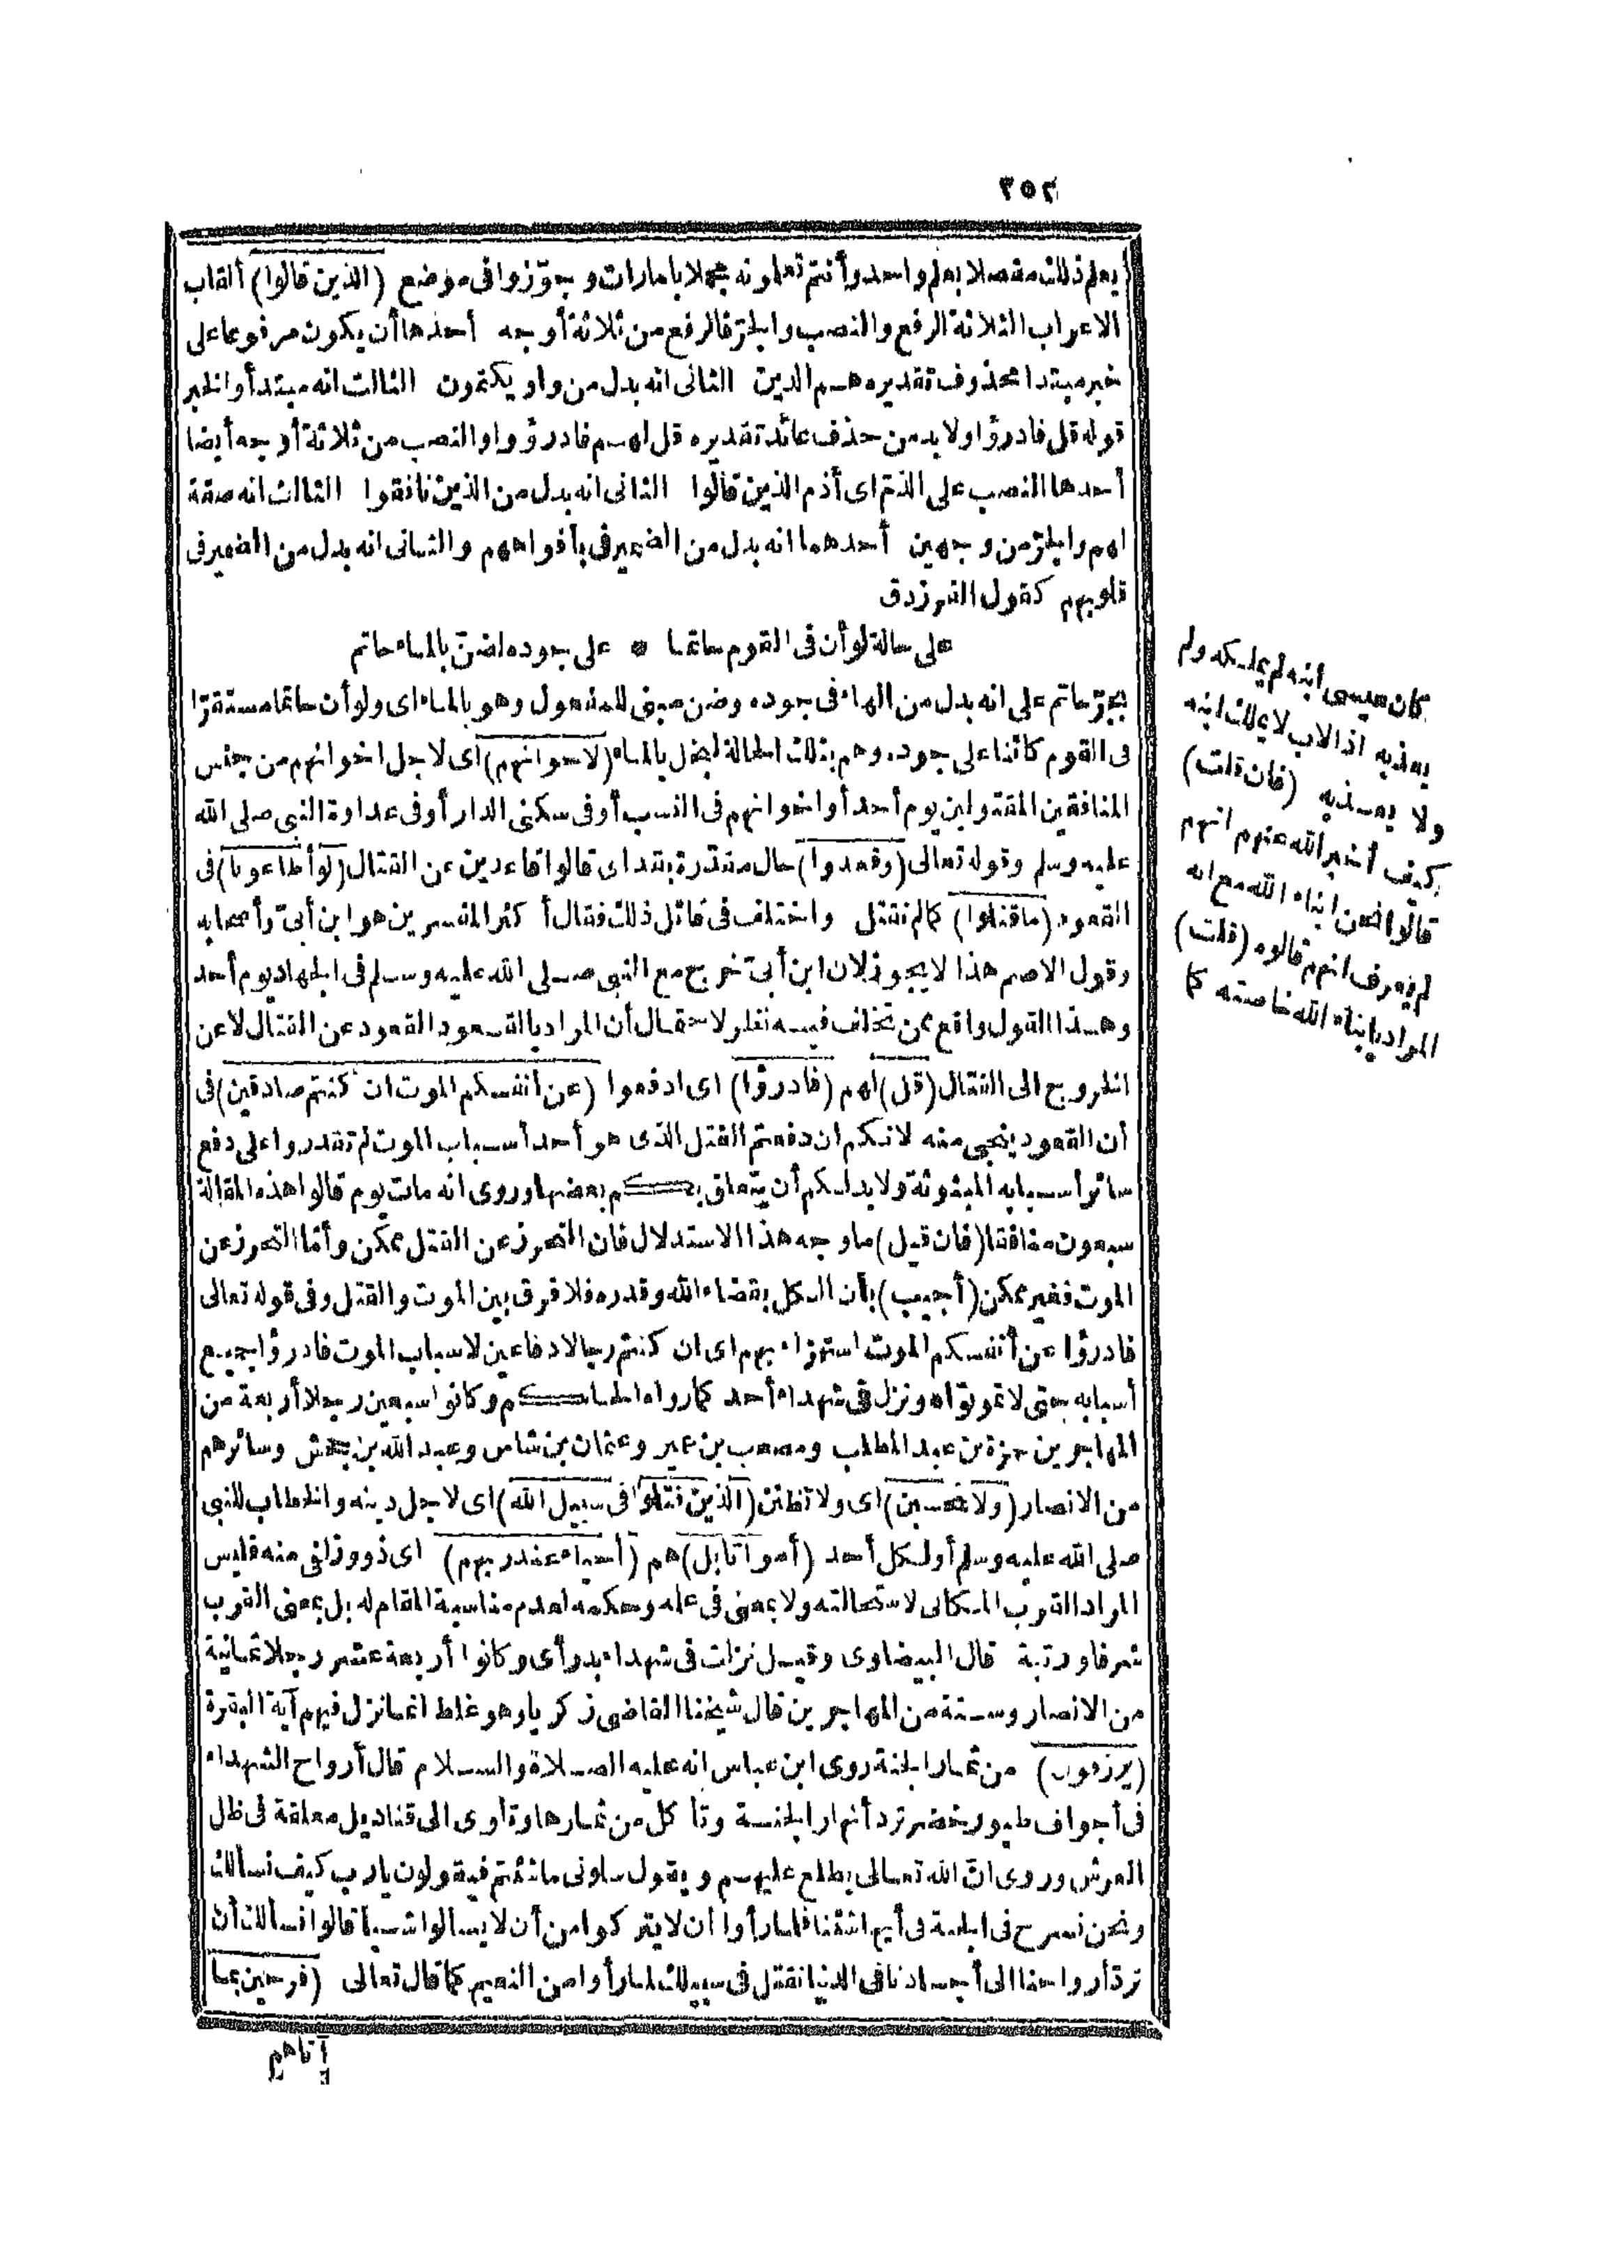 ٢٥٢
يعلم ذلك مفصلا بعلم واحد وأنتم تعلمونه مجملا بامارات وجوّزوا فى موضع (الذين قالوا) ألقاب
الاعراب الثلاثة الرفع والنصب والجرّ فالرفع من ثلاثة أوجه أحدها أن يكون مرفوعا على
خبر مبتدا محذوف تقديره هم الذين الثانى انه بدل من واو يكتمون الثالث انه مبتدأ والخبر
قوله قل فادرؤا ولا بد من حذف عائد تقديره قل لهم فادرؤوا والنصب من ثلاثة أوجه أيضا
أحدها النصب على الذتم اى أذم الذين قالوا الثانى انه بدل من الذين نافقوا الثالث انه صفة
لهم والجرّ من وجهين أحدهما انه بدل من الضمير فى بأفواههم والثانى انه بدل من الضمير فى
قلوبهم كقول الفرزدق
على حالة لو أن فى القوم حاتما * على جوده لضنّ بالماء حاتم
بجرّ حاتم على انه بدل من الهاء فى جوده وضن مبنى للمفعول وهو بالماء اى ولو أن حاتما مستقرّا
فى القوم كائنا على جوده وهم بتلك الحالة لبخل بالماء (لاخوانهم) اى لاجل اخوانهم من جنس
المنافقين المقتولين يوم أحد أو اخوانهم فى النسب أو فى سكنى الدار أو فى عداوة النبى صلى الله
عليه وسلم وقوله تعالى (وقعدوا) حال مقدّرة بقد اى قالوا قاعدين عن القتال (لو أطاعونا) فى
القعود (ما قتلوا) كما لم نقتل واختلف فى قائل ذلك فقال أكثر المفسرين هو ابن أبىّ وأصحابه
وقول الاصم هذا لا يجوز لان ابن أبىّ خرج مع النبى صلى الله عليه وسلم فى الجهاد يوم أحد
وهذا القول واقع ممن تخلف فيه نظر لاحتمال أن المراد بالقعود القعود عن القتال لا عن
الخروج الى القتال (قل) لهم (فادرؤا) اى ادفعوا (عن أنفسكم الموت ان كنتم صادقين) فى
أن القعود ينجى منه لانكم ان دفعتم القتل الذى هو أحد أسباب الموت لم تقدروا على دفع
سائر أسبابه المبثوثة ولا بد لكم أن يتعلق بكم بعضها وروى انه مات يوم قالوا هذه المقالة
سبعون منافقا (فان قيل) ما وجه هذا الاستدلال فان التحرز عن القتل ممكن وأمّا التحرز عن
الموت فغير ممكن (أجيب) بأن الكل بقضاء الله وقدره فلا فرق بين الموت والقتل وفى قوله تعالى
فادرؤا عن أنفسكم الموت استهزاء بهم اى ان كنتم رجالا دفاعين لاسباب الموت فادرؤا جميع
أسبابه حتى لا تموتوا* ونزل فى شهداء أحد كما رواه الحاكم وكانوا سبعين رجلا أربعة من
المهاجرين حمزة بن عبد المطلب ومصعب بن عمير وعثمان بن شماس وعبد الله بن جحش وسائرهم
من الانصار (ولا تحسبن) اى ولا تظنن (الذين قتلوا فى سبيل الله) اى لاجل دينه والخطاب للنبى
صلى الله عليه وسلم أو لكل أحد (أمواتا بل) هم (أحياء عند ربهم) اى ذوو زلفى منه فليس
المراد القرب المكانى لاستحالته ولا بمعنى فى علمه وحكمه لعدم مناسبة المقام له بل بمعنى القرب
شرفا ورتبة قال البيضاوى وقيل نزلت فى شهداء بدر أى وكانوا أربعة عشر رجلا ثمانية
من الانصار وستة من المهاجرين قال شيخنا القاضى زكريا وهو غلط انما نزل فيهم آية البقرة
(يرزقون) من ثمار الجنة روى ابن عباس انه عليه الصلاة والسلام قال أرواح الشهداء
فى أجواف طيور خضر ترد أنهار الجنة وتأكل من ثمارها وتأوى الى قناديل معلقة فى ظل
العرش وروى انّ الله تعالى يطلع عليهم ويقول سلونى ما شئتم فيقولون يا رب كيف نسألك
ونحن نسرح فى الجنة فى أيها شئنا فلما رأوا أن لا يتركوا من أن لا يسألوا شيأ قالوا نسألك أن
تردّ أرواحنا الى أجسادنا فى الدنيا نقتل فى سبيلك لما رأوا من النعيم كما قال تعالى (فرحين بما
آتاهم
كان عيسى ابنه لم يملكه ولم
يعذبه اذ الاب لا يملك ابنه
ولا يعذبه (فان قلت)
كيف أخبر الله عنهم انهم
قالوا نحن ابناء الله مع انه
لم يعرف انهم قالوه (قلت)
المراد بابناء الله خاصته كما